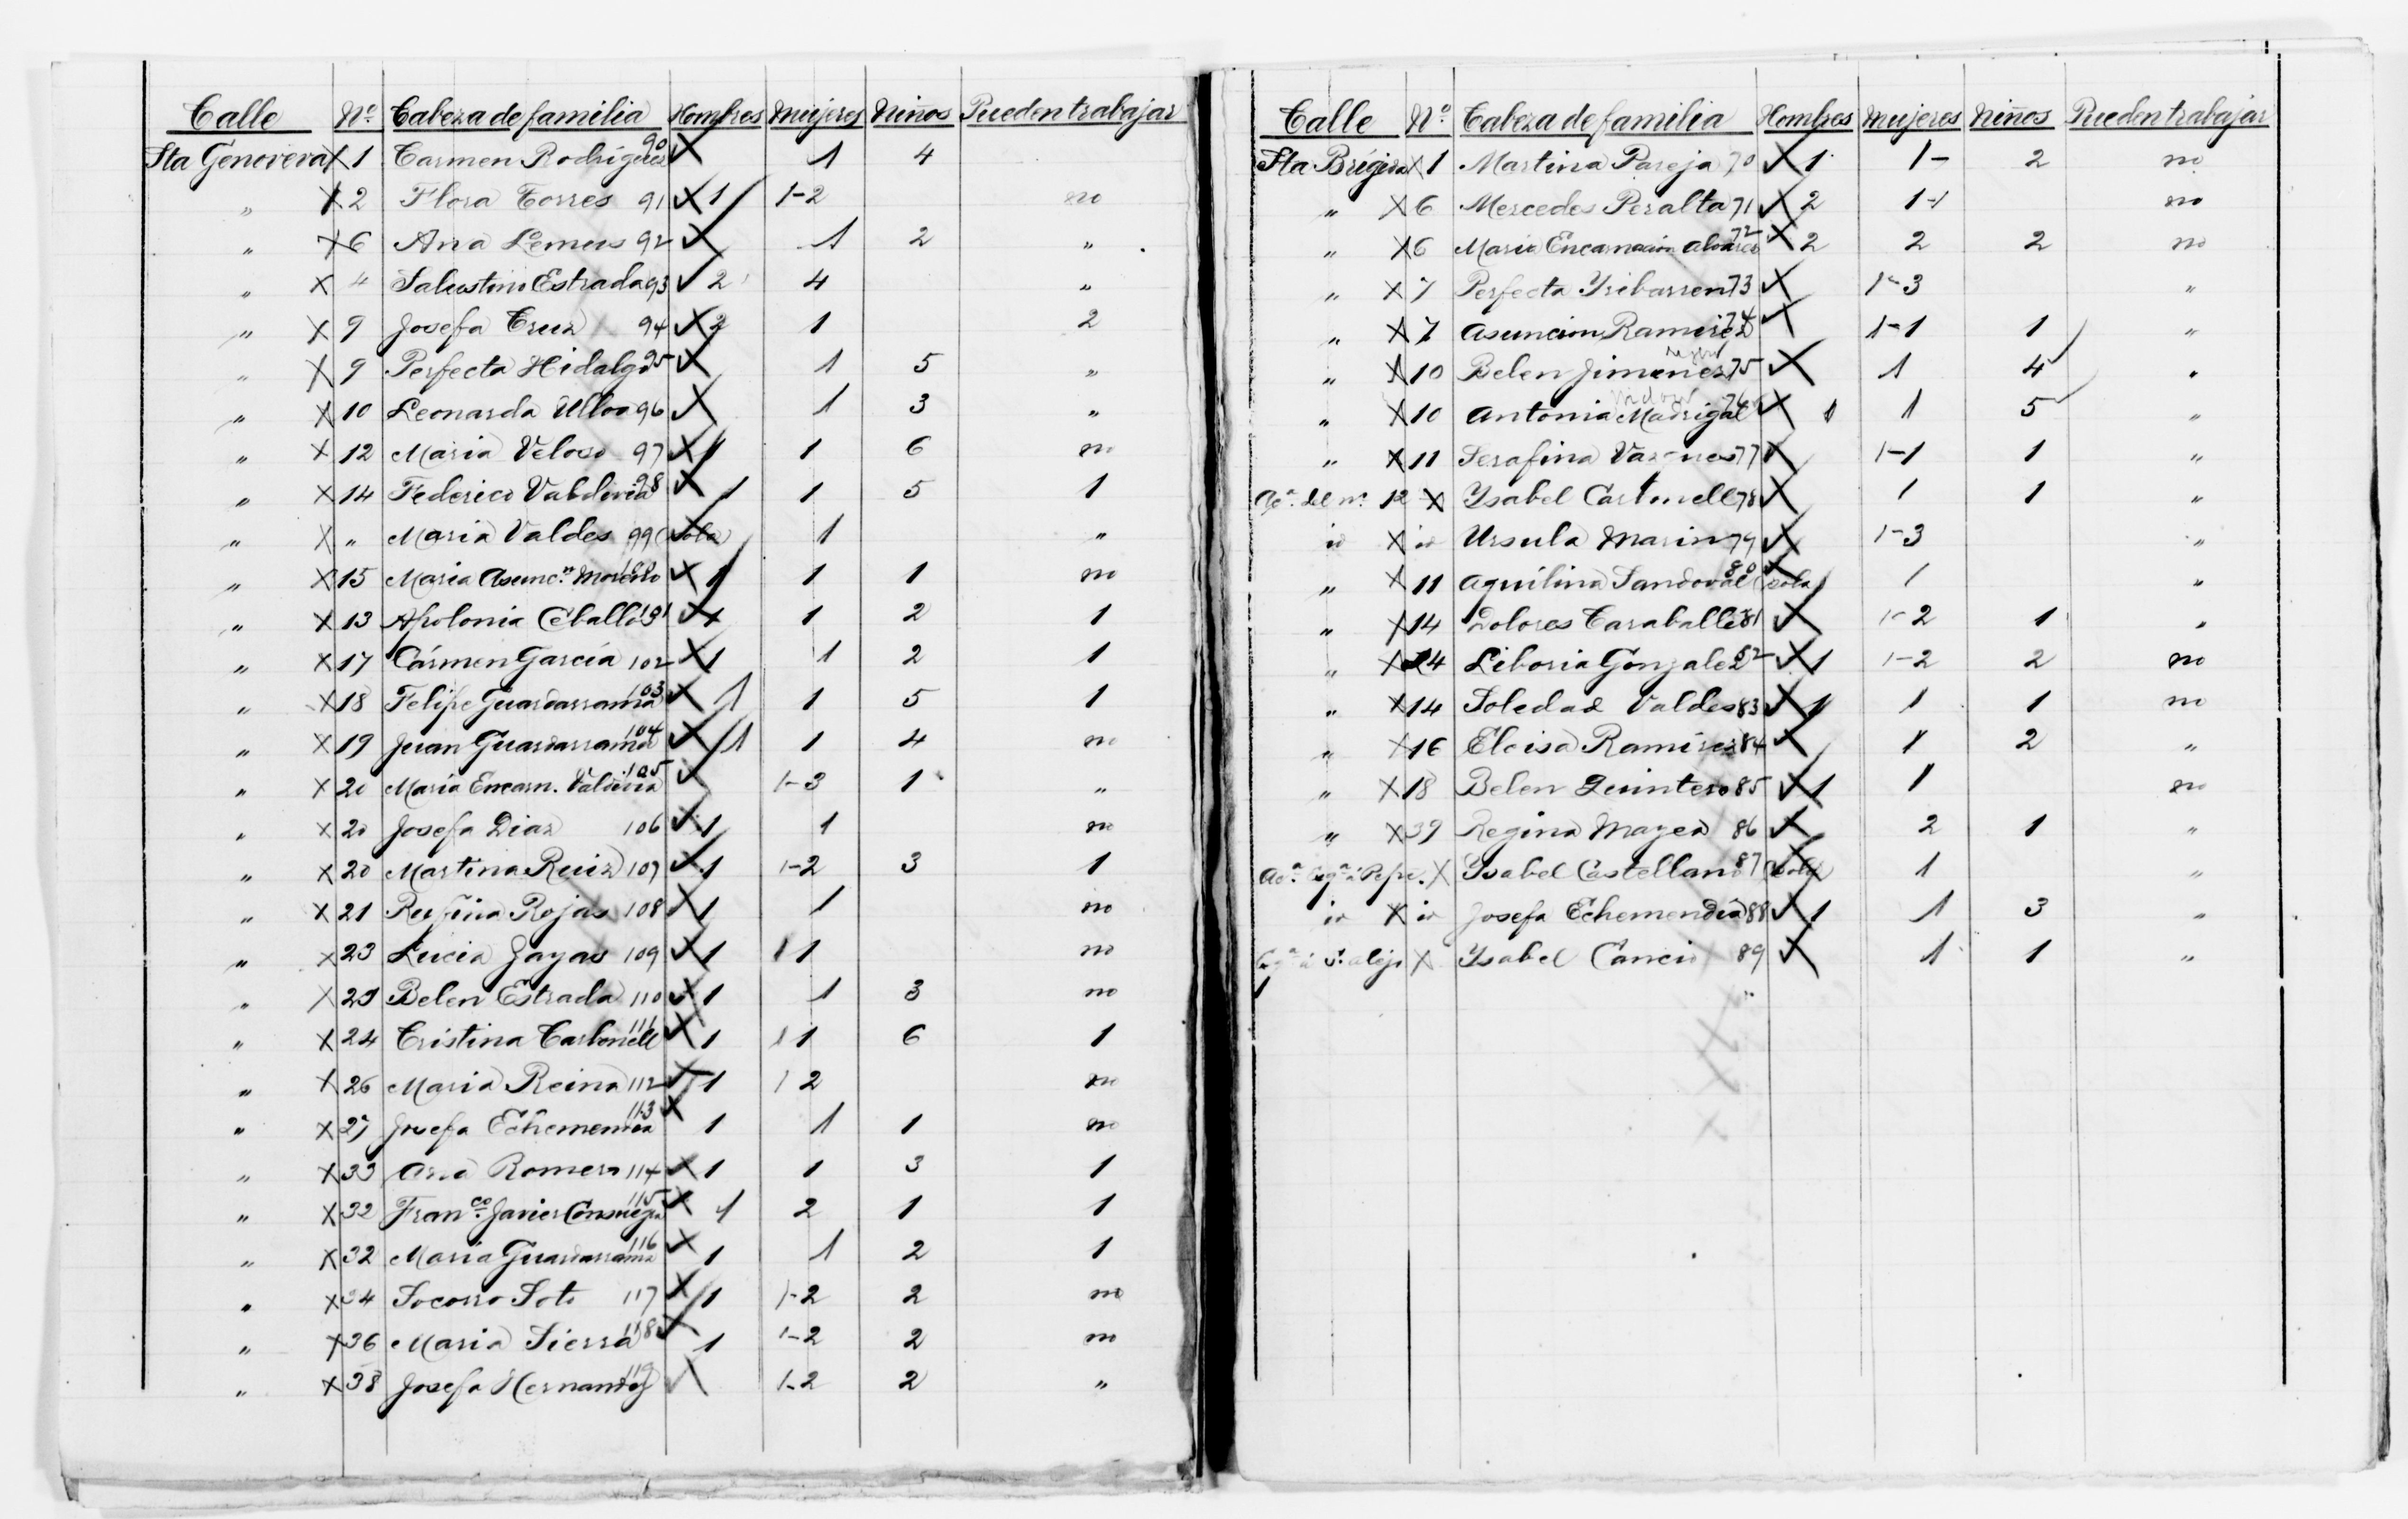 Calle Nº Cabeza de familia Hombres Mujeres Niños Pueden trabajar
Sta Genoveva X 1 Carmen Rodríguez 90 X 1 4
" X 2 Flora Torres 91 X 1 1-2 no
" X 6 Ana Lemus 92 X 1 2 "
" X " Salustino Estrada 93 ✓ 2 4 "
" X 9 Josefa Cruz 94 X 2 1 2
" X 9 Perfecta Hidalgo 95 X 1 5 "
" X 10 Leonarda Ulloa 96 X 1 3 "
" X 12 Maria Veloso 97 X 1 1 6 no
" X 14 Federico Valdivia 98 X 1 1 5 1
" X " Maria Valdes 99 (sola) 1 "
" X 15 Maria Asunc.n Moreno 100 X 1 1 1 no
" X 13 Apolonia Ceballo 101 X 1 1 2 1
" X 17 Cármen García 102 X 1 1 2 1
" X 18 Felipe Guardarrama 103 X 1 1 5 1
" X 19 Juan Guardarrama 104 X 1 1 4 no
" X 20 María Encarn. Valdivia 105 X 1-3 1 "
" X 20 Josefa Diaz 106 X 1 1 no
" X 20 Martina Ruiz 107 X 1 1-2 3 1
" X 21 Rufina Rojas 108 X 1 1 no
" X 23 Lucia Zayas 109 X 1 1 no
" X 23 Belen Estrada 110 X 1 1 3 no
" X 24 Cristina Carbonell 111 X 1 1 6 1
" X 26 Maria Reina 112 X 1 1 2 no
" X 27 Josefa Echemendia 113 X 1 1 1 no
" X 33 Ana Romero 114 X 1 1 3 1
" X 32 Fran.co Javier Consuegra 115 X 1 2 1 1
" X 32 Maria Guardarrama 116 X 1 1 2 1
" X 34 Socorro Soto 117 X 1 1-2 2 no
" X 36 Maria Sierra 118 X 1 1-2 2 no
" X 38 Josefa Hernandez 119 X 1-2 2 "
Calle Nº Cabeza de familia Hombres Mujeres Niños Pueden trabajar
Sta Brígida X 1 Martina Pareja 70 X 1 1- 2 no
" X 6 Mercedes Peralta 71 X 2 1-1 no
" X 6 Maria Encarnacion Alvarez 72 X 2 2 2 no
" X 7 Perfecta Yribarren 73 X 1-3 "
" X 7 Asuncion Ramirez 74 X 1-1 1 "
" X 10 Belen Jimenez 75 X 1 4 "
" X 10 Antonia Madrigal 76 X 1 5 "
" X 11 Serafina 77 X 1-1 1 "
Ac.a del nº 12 X Ysabel 78 X 1 1 "
id X id Ursula Marin 79 X 1-3 "
" X 11 Aquilina Sandoval 80 (sola) 1 "
" X 14 Dolores Caraballo 81 X 1-2 1 "
" X 14 Liboria Gonzalez 82 X 1 1-2 2 no
" X 14 Soledad Valdes 83 X 1 1 1 no
" X 16 Eloisa Ramírez 84 X 1 2 "
" X 18 Belen Quintero 85 X 1 1 no
" X 39 Regina Mayea 86 X 2 1 "
Ac.a Pepe. X Ysabel Castellano 87 (sola) 1 "
id X id Josefa Echemendía 88 X 1 1 3 "
X Ysabel Cancio 89 X 1 1 "